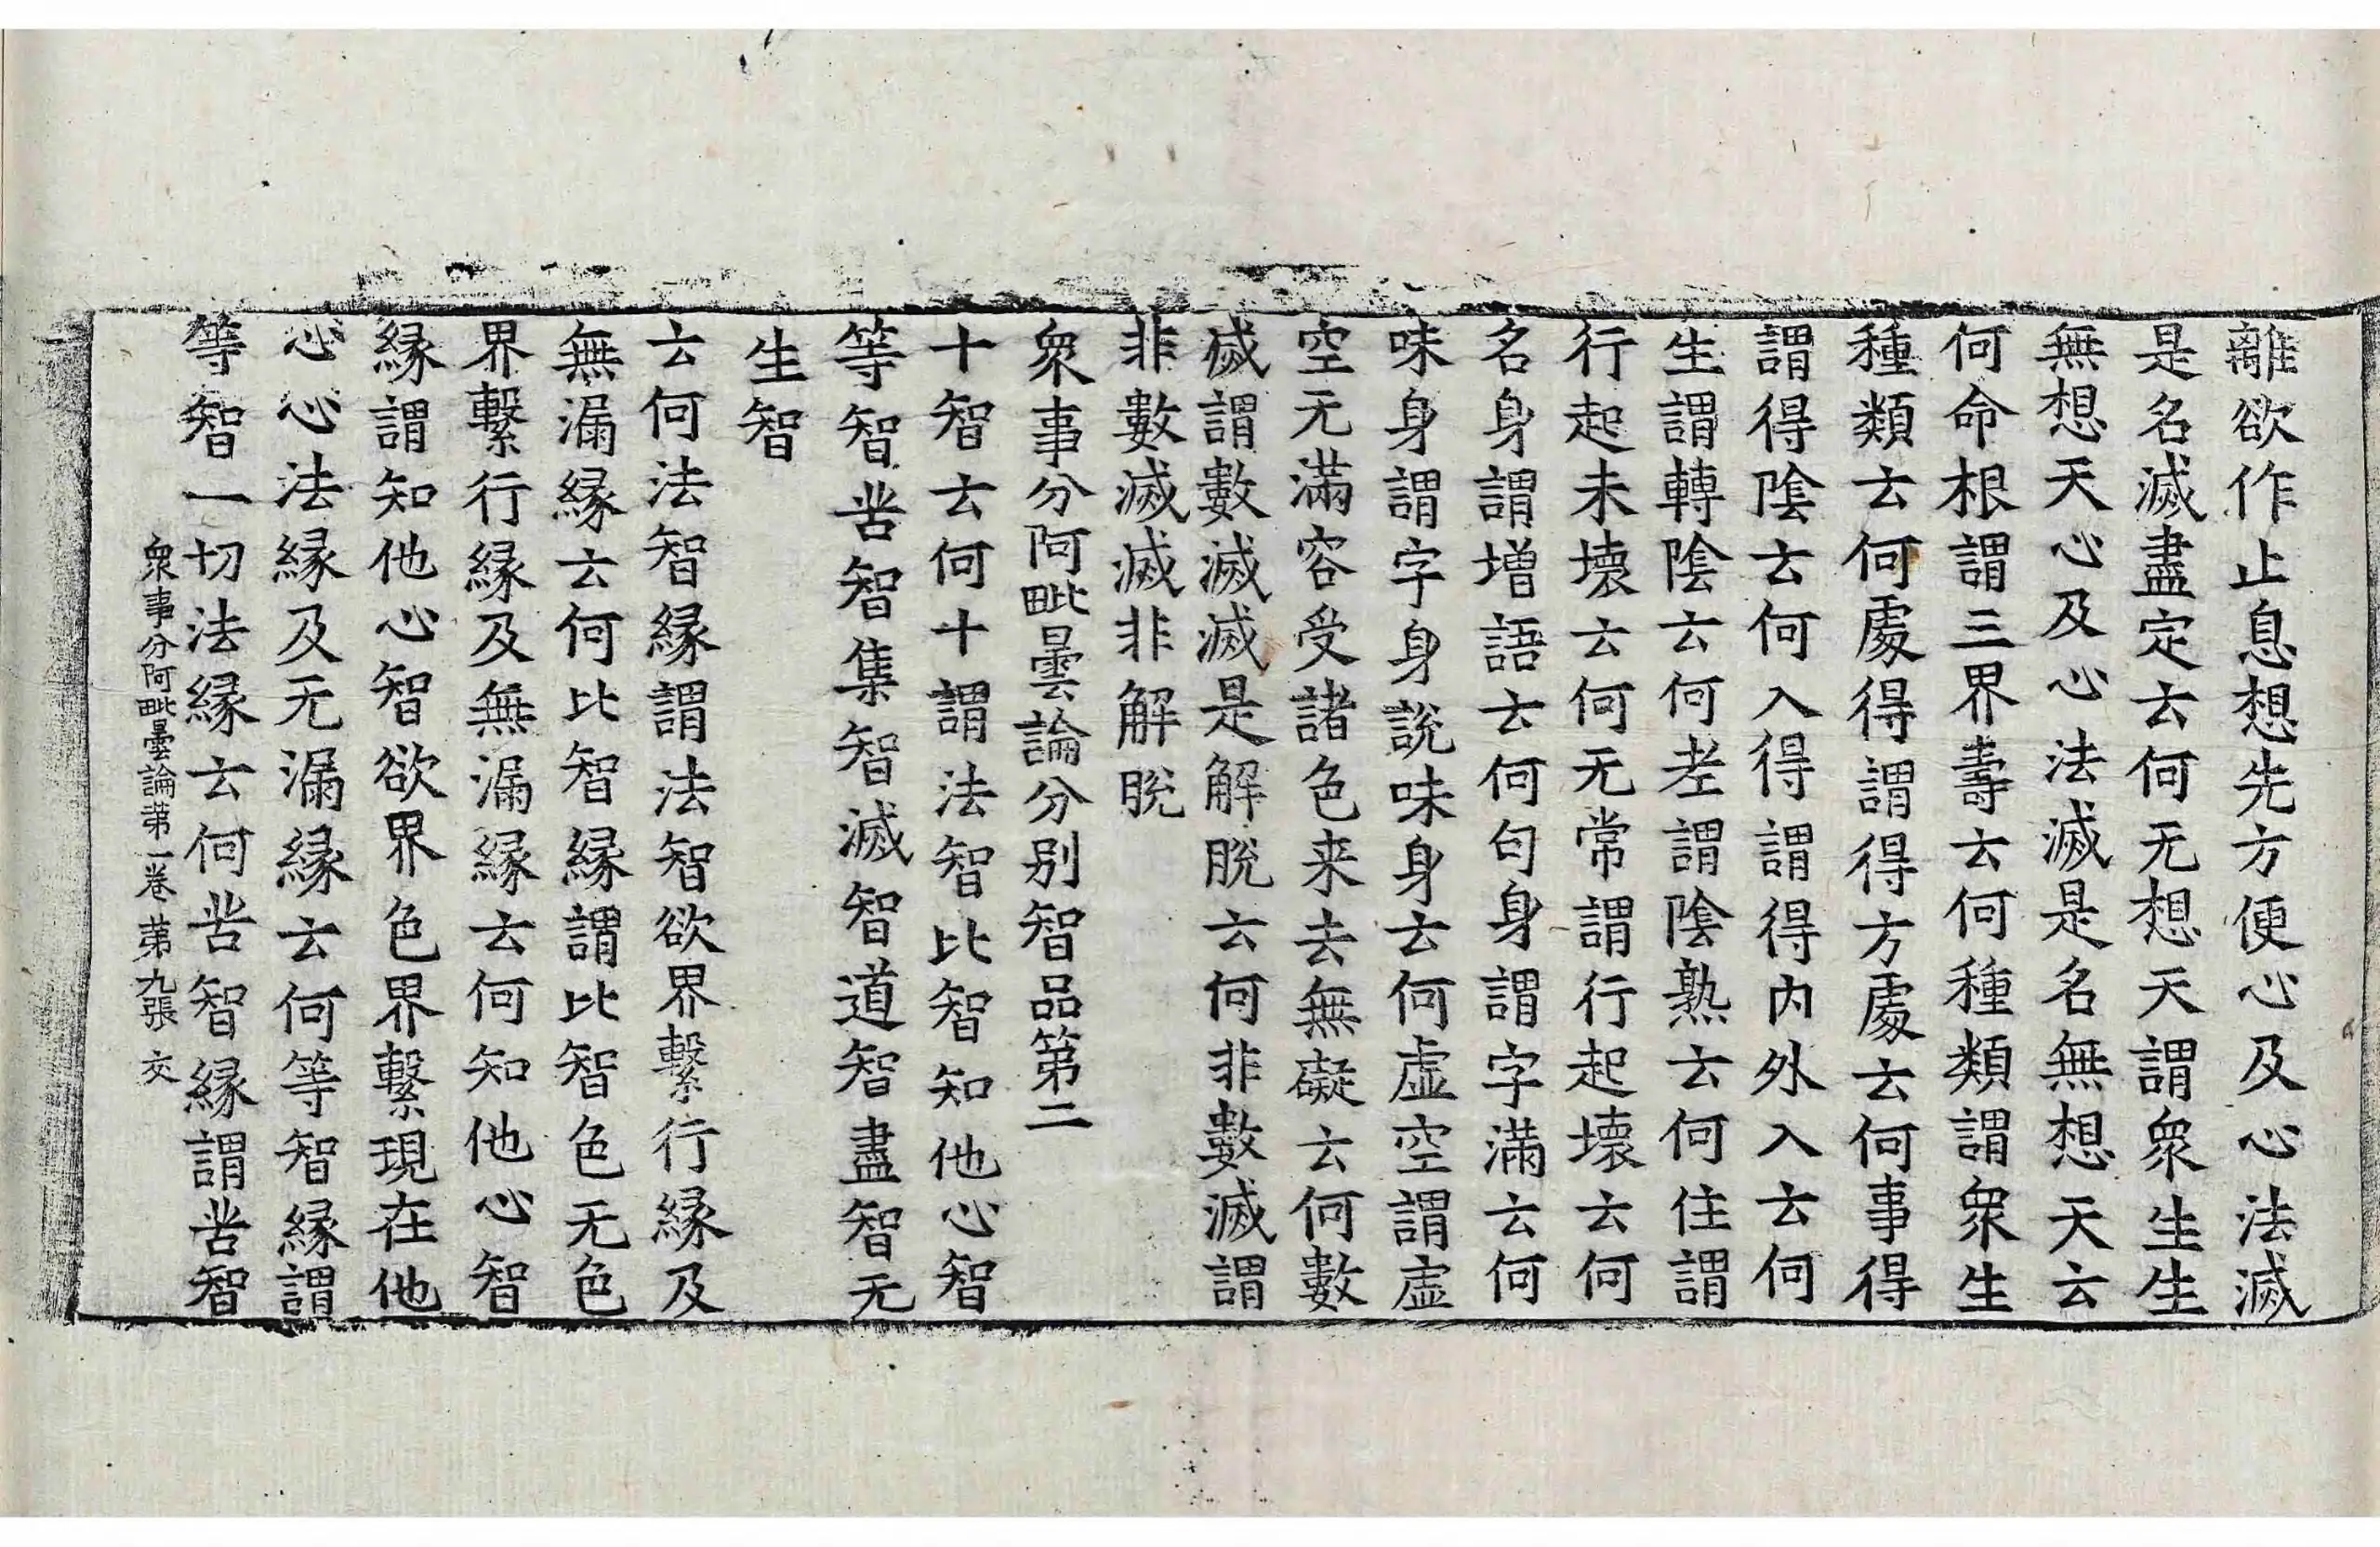 離欲作止息想先方便心及心法滅
是名滅盡定云何无想天謂衆生生
無想天心及心法滅是名無想天云
何命根謂三界壽云何種類謂衆生
種類云何處得謂得方處云何事得
謂得陰云何入得謂得内外入云何
生謂轉陰云何老謂陰熟云何住謂
行起未壞云何无常謂行起壞云何
名身謂增語云何句身謂字滿云何
味身謂字身說味身云何虛空謂虛
空无滿容受諸色来去無礙云何數
滅謂數滅滅是解脫云何非數滅謂
非數滅滅非解脫
衆事分阿毗曇論分别智品第二
十智云何十謂法智比智知他心智
等智苦智集智滅智道智盡智无
生智
云何法智緣謂法智欲界繫行緣及
無漏緣云何比智緣謂比智色无色
界繫行緣及無漏緣云何知他心智
緣謂知他心智欲界色界繫現在他
心心法緣及无漏緣云何等智緣謂
等智一切法緣云何苦智緣謂苦智
衆事分阿毗曇論第一卷 第九張 交